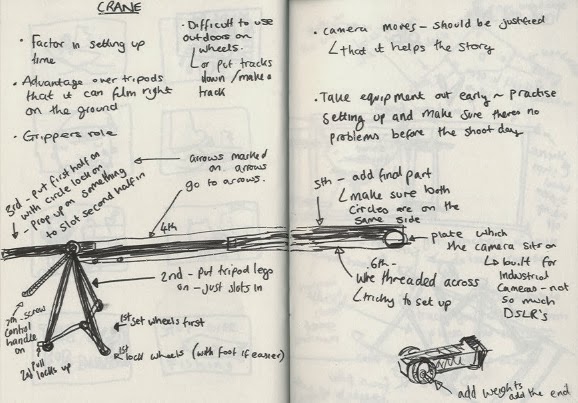 CRANE
· Factor in setting up
time
· Advantage over tripods
that it can film right
on the ground
· Grippers role
· Difficult to use
outdoors on
wheels.
or put tracks
down / make a
track
3rd - put first half on
with circle lock on
- prop up on something
to slot second half in
arrows marked
on. arrows
go to arrows.
4th
2nd - put tripod legs
on - just slots in
7th - screw
control
handle
on
1st set wheels first
1st lock wheels (with foot if easier)
2nd pull
locks up
· camera moves - should be justified
that it helps the story
· Take equipment out early ~ practise
setting up and make sure theres no
problems before the shoot day
5th - add final part
make sure both
circles are on the
same side
plate which
the camera sits on
built for
industrial
cameras - not
so much
DSLR's
6th -
wire threaded across
tricky to set up
add weights
add the end